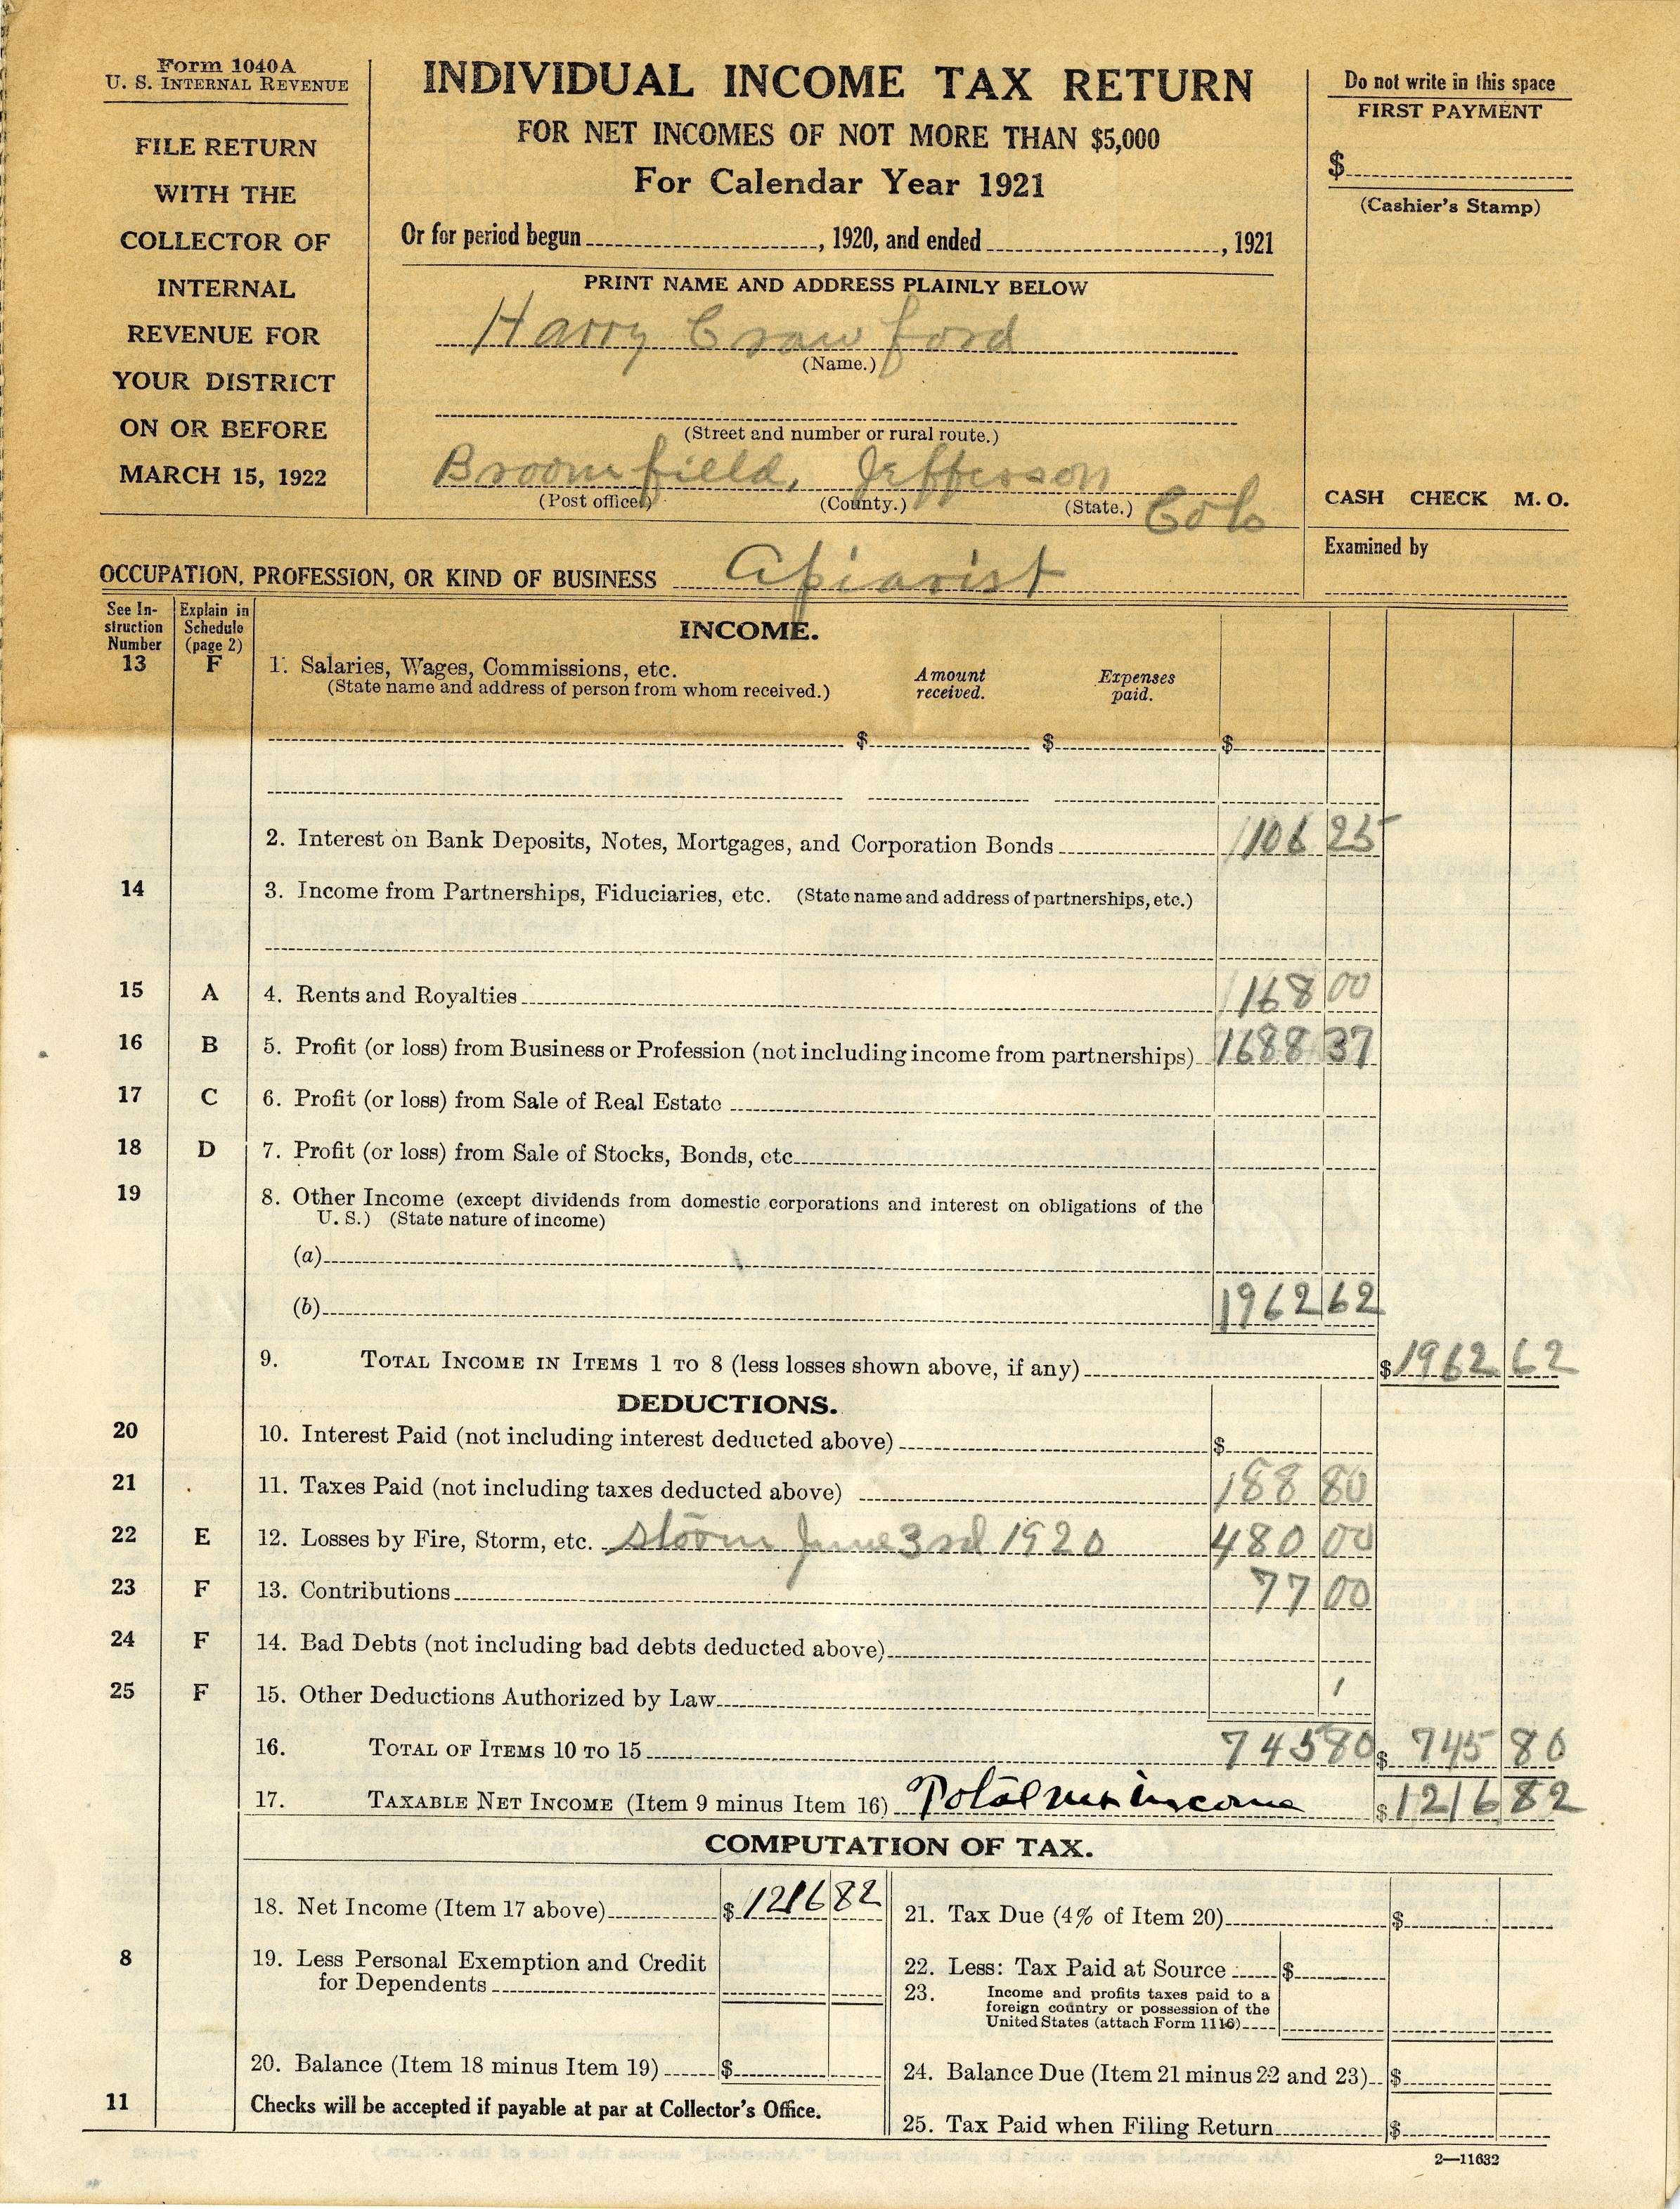 Form 1040A
U. S. INTERNAL REVENUE
FILE RETURN
WITH THE
COLLECTOR OF
INTERNAL
REVENUE FOR
YOUR DISTRICT
ON OR BEFORE
MARCH 15, 1922
INDIVIDUAL INCOME TAX RETURN
FOR NET INCOMES OF NOT MORE THAN $5,000
For Calendar Year 1921
Or for period begun , 1920, and ended , 1921
PRINT NAME AND ADDRESS PLAINLY BELOW
Harry Crawford
(Name.)
(Street and number or rural route.)
Broomfield, Jefferson Colo
(Post office) (County.) (State.)
Do not write in this space
FIRST PAYMENT
$
(Cashier's Stamp)
CASH CHECK M. O.
Examined by
OCCUPATION, PROFESSION, OR KIND OF BUSINESS Apiarist
See Instruction Number
Explain in Schedule (page 2)
INCOME.
13 F 1. Salaries, Wages, Commissions, etc. Amount received. Expenses paid.
(State name and address of person from whom received.)
$ $ $
2. Interest on Bank Deposits, Notes, Mortgages, and Corporation Bonds 106 25
14 3. Income from Partnerships, Fiduciaries, etc. (State name and address of partnerships, etc.)
15 A 4. Rents and Royalties 168 00
16 B 5. Profit (or loss) from Business or Profession (not including income from partnerships) 1688 37
17 C 6. Profit (or loss) from Sale of Real Estate
18 D 7. Profit (or loss) from Sale of Stocks, Bonds, etc
19 8. Other Income (except dividends from domestic corporations and interest on obligations of the
U. S.) (State nature of income)
(a)
(b) 1962 62
9. TOTAL INCOME IN ITEMS 1 TO 8 (less losses shown above, if any) $ 1962 62
DEDUCTIONS.
20 10. Interest Paid (not including interest deducted above) $
21 11. Taxes Paid (not including taxes deducted above) 188 80
22 E 12. Losses by Fire, Storm, etc. Storm June 3rd 1920 480 00
23 F 13. Contributions 77 00
24 F 14. Bad Debts (not including bad debts deducted above)
25 F 15. Other Deductions Authorized by Law
16. TOTAL OF ITEMS 10 TO 15 745 80 $ 745 80
17. TAXABLE NET INCOME (Item 9 minus Item 16) Total net income $ 1216 82
COMPUTATION OF TAX.
18. Net Income (Item 17 above) $ 1216 82
8 19. Less Personal Exemption and Credit
for Dependents
20. Balance (Item 18 minus Item 19) $
11 Checks will be accepted if payable at par at Collector's Office.
21. Tax Due (4% of Item 20) $
22. Less: Tax Paid at Source $
23. Income and profits taxes paid to a
foreign country or possession of the
United States (attach Form 1116)
24. Balance Due (Item 21 minus 22 and 23) $
25. Tax Paid when Filing Return $
2—11632